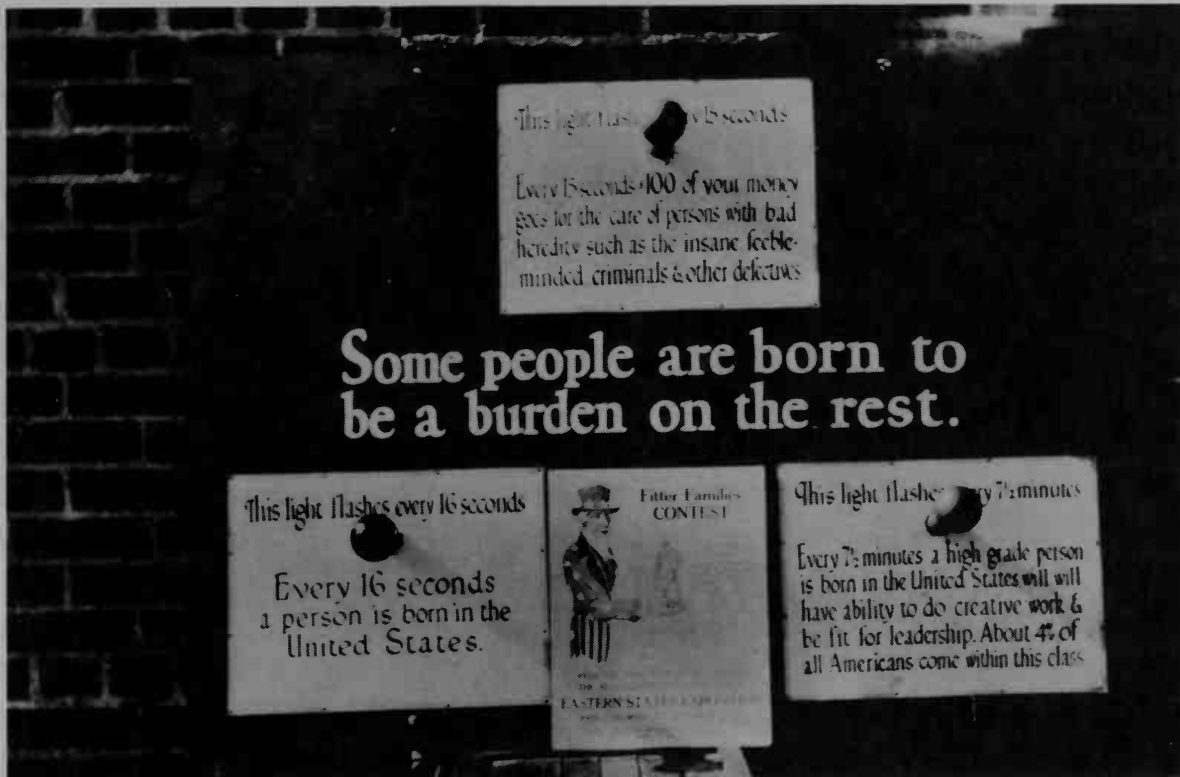 This light flash y 15 seconds
Every 15 seconds $100 of your money
goes for the care of persons with bad
heredity such as the insane feeble-
minded criminals & other defectives
Some people are born to
be a burden on the rest.
This light flashes every 16 seconds
Every 16 seconds
a person is born in the
United States.
Fitter Families
CONTEST
EASTERN STATES EXPOSITION
This light flashes ry 7½ minutes
Every 7½ minutes a high grade person
is born in the United States will will
have ability to do creative work &
be fit for leadership. About 4% of
all Americans come within this class